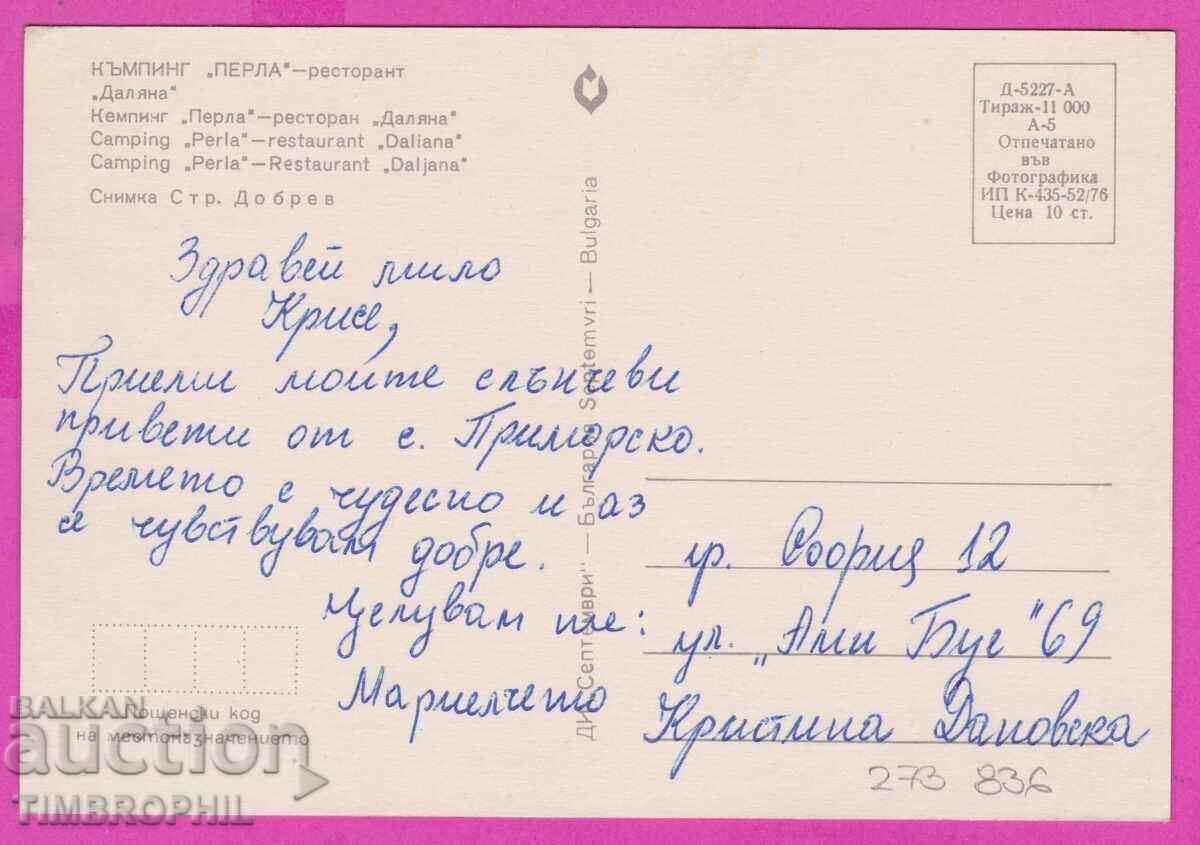 КЪМПИНГ „ПЕРЛА"—ресторант
„Даляна"
Кемпинг „Перла"—ресторан „Даляна"
Camping „Perla"—restaurant „Daliana"
Camping „Perla"—Restaurant „Daljana"
Снимка Стр. Добрев
Д-5227-А
Тираж-11 000
А-5
Отпечатано
във
Фотографика
ИП К-435-52/76
Цена 10 ст.
ДИ „Септември" — Български Septemvri — Bulgaria
Здравей мило
Крисе,
Приеми моите слънчеви
привети от с. Приморско.
Времето е чудесно и аз
се чувствувам добре.
Целувам те:
Мариелчето
гр. София 12
ул. „Ами Буе" 69
Кристина Дановска
Пощенски код
на местоназначението
273 836
BALKAN
auction
TIMBROPHIL